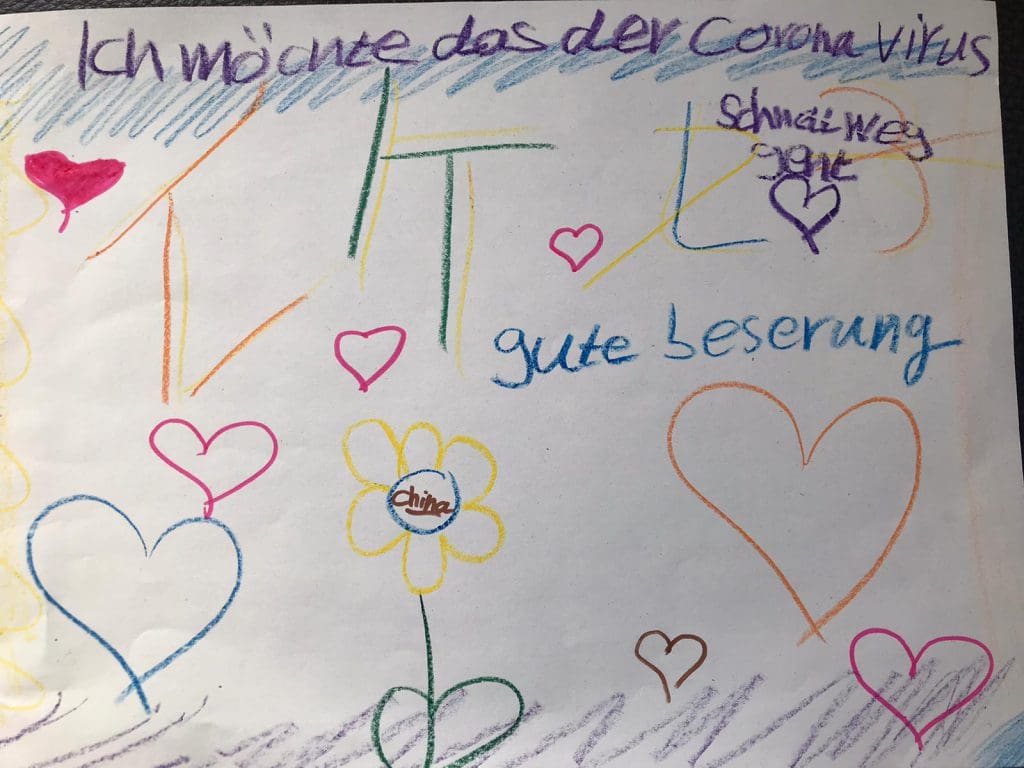 Ich möchte das der Corona Virus
Schnäl weg
geht
gute beserung
china